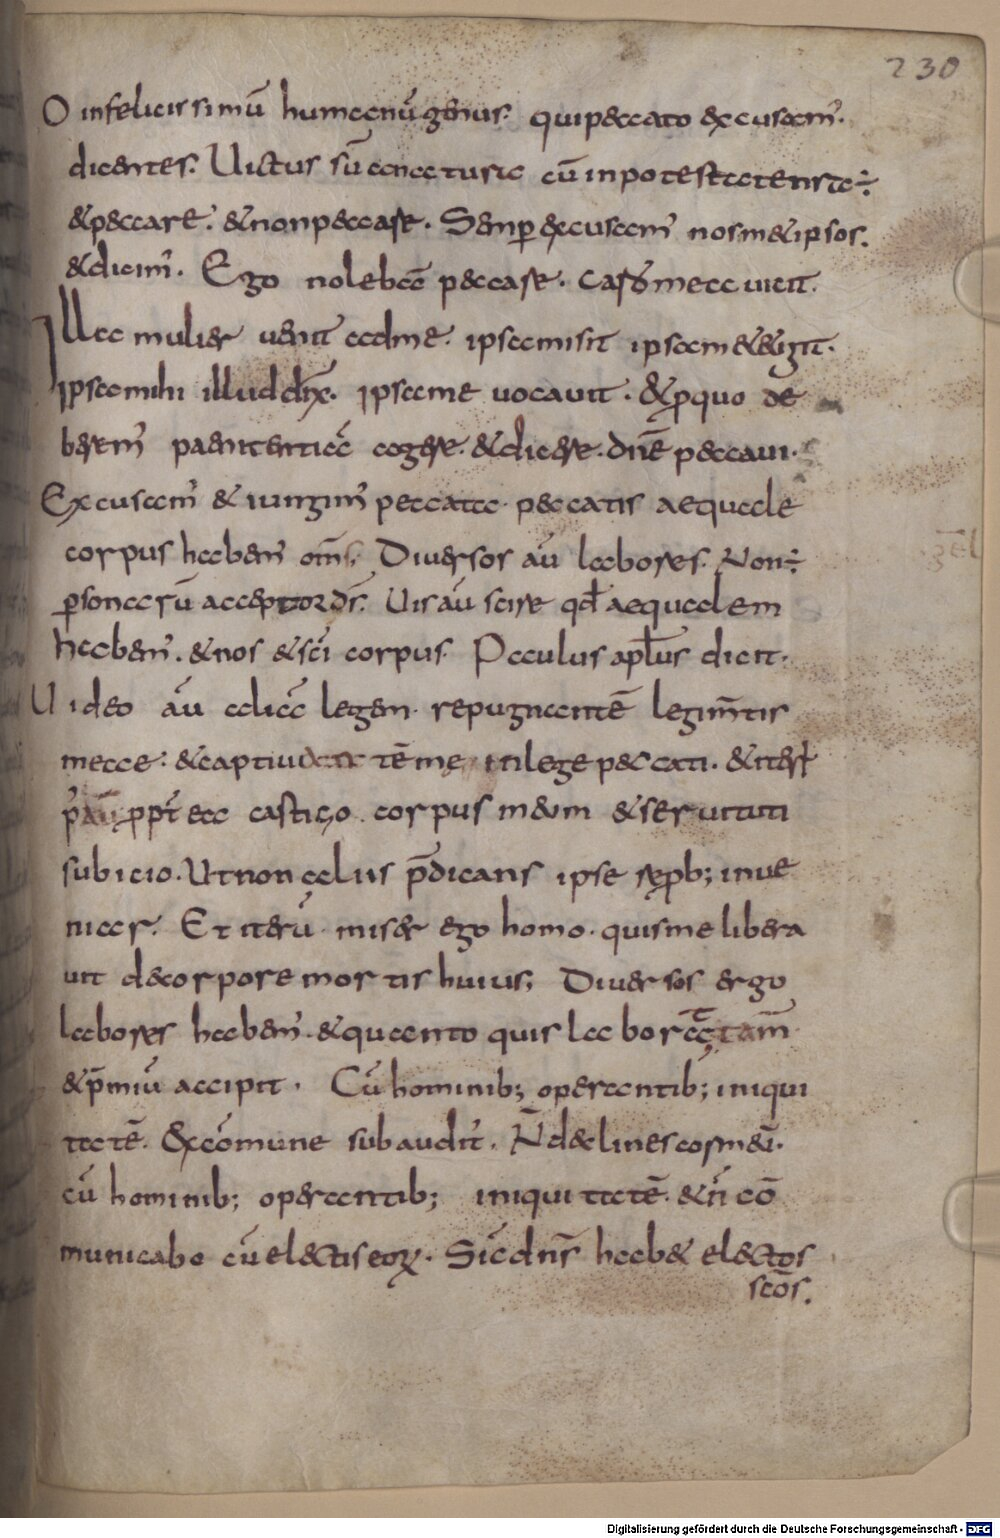 230
O infelicissimū humanū genus. qui peccato excusam̄.
dicentes. Uictus sū a natura cū in potestate nr̄a ÷
& peccare. & non peccare. Semp̄ excusam̄ nosm&ipsos.
& dicim̄. Ego nolebā peccare. Caro mea uicit.
Illa mulier uenit ad me. ipsa misit ipsa me &egit.
Ipsa mihi illud dix̄. Ipsa me uocauit. & ꝑ quo de
berem̄ paenitentiā agere. & dicere. dn̄e peccaui.
Excusam̄ & iungim̄ peccata peccatis aequale
corpus habem̄ om̄s. Diuersos aū labores. Non ÷
ꝑsonarū acceptor d̄s. Uis aū scire qđ aequalem
habem̄. & nos & sc̄i corpus. Paulus apl̄us dicit.
Uideo aū aliā legem. repugnantē legi m̄tis
meae. & captiuantē me in lege peccati. & iterū
ꝓpt̄ ea castigo corpus meum & seruituti
subicio. Ut non aliis p̄dicans ipse reꝓb; inue
niar. Et iterū miser ego homo. quis me libera
uit de corpore mortis huius; Diuersos ergo
labores habem̄. & quanto quis laborat tam̄
& p̄miū accipit. Cū hominib; operantib; iniqui
tatē. Excōmune subaudit̄. N̄ declines cor meū.
cū hominib; operantib; iniquitatē. & n̄ cō
municabo cū electis eoꝝ. Sic dn̄s hab& electos
sc̄os.
Digitalisierung gefördert durch die Deutsche Forschungsgemeinschaft - DFG